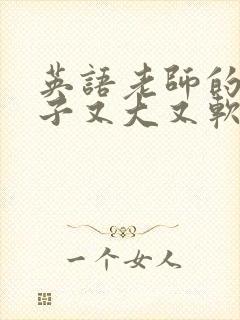 英語老師的
子又大又軟
一个女人